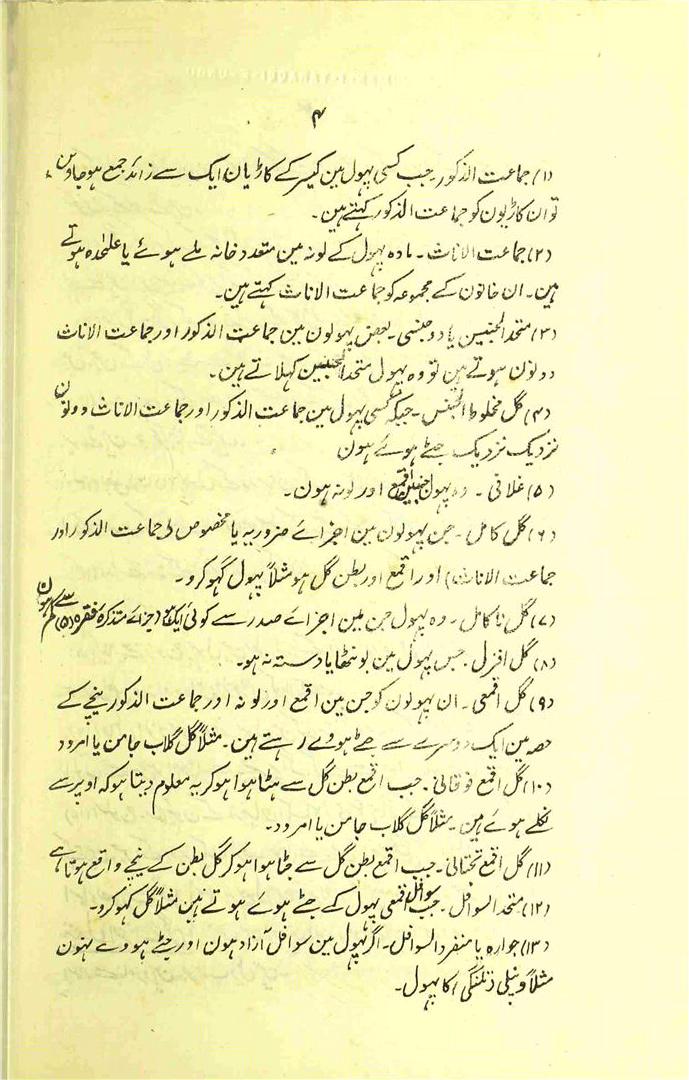 ۴
(۱) جماعت الذکور۔ جب کسی پہول مین کیسر کے کاڑیان ایک سے زائد جمع ہو جاوین
تو ان کاڑیون کو جماعت الذکور کہتے ہین۔
(۲) جماعت الاناث۔ مادہ پہول کے لونہ مین متعدد خانہ ملے ہوئے یا علحٰدہ ہوتے
ہین۔ ان خانون کے مجموعہ کو جماعت الاناث کہتے ہین۔
(۳) متحد الجنسین یا دو جنسی۔ بعض پہولون مین جماعت الذکور اور جماعت الاناث
دونون ہوتے ہین تو وہ پہول متحد الجنسین کہلاتے ہین۔
(۴) گل مخلوط الجنس۔ جبکہ کسی پہول مین جماعت الذکور اور جماعت الاناث دونون
نزدیک نزدیک جٹے ہوئے ہون
(۵) غلافی۔ وہ پہول جنمین اقمع اور لونہ ہون۔
(۶) گل کامل۔ جن پہولون مین اجزائے ضروریہ یا مخصوص (جماعت الذکور اور
جماعت الاناث) اور اقمع اور بطن گل ہو مثلاً پہول گہوکرو۔
(۷) گل ناکامل۔ وہ پہول جن مین اجزائے صدر سے کوئی ایک جزائے متذکرہ فقرہ (۵) سے کم ہون
(۸) گل افزل۔ جس پہول مین بونٹھا یا دستہ نہ ہو۔
(۹) گل اقمعی۔ ان پہولون کو جن مین اقمع اور لونہ اور جماعت الذکور نیچے کے
حصہ مین ایک دوسرے سے جٹے ہووے رہتے ہین۔ مثلاً گل گلاب جامن یا امرود
(۱۰) گل اقمع فوقانی۔ جب اقمع بطن گل سے ہٹا ہوا ہو کر یہ معلوم دیتا ہو کہ اوپر سے
نکلے ہوئے ہین۔ مثلاً گل گلاب جامن یا امرود۔
(۱۱) گل اقمع تحتانی۔ جب اقمع بطن گل سے جٹا ہوا ہو کر گل بطن کے نیچے واقع ہوتا ہے
(۱۲) متحد السوافل۔ جب سوافل اقمعی پہول کے جٹے ہوئے ہوتے ہین مثلاً گل گہوکرو۔
(۱۳) جوارہ یا منفرد السوافل۔ اگر پہول مین سوافل آزاد ہون اور جٹے ہووے نہون
مثلاً ولیلی (تلنگی) کا پہول۔